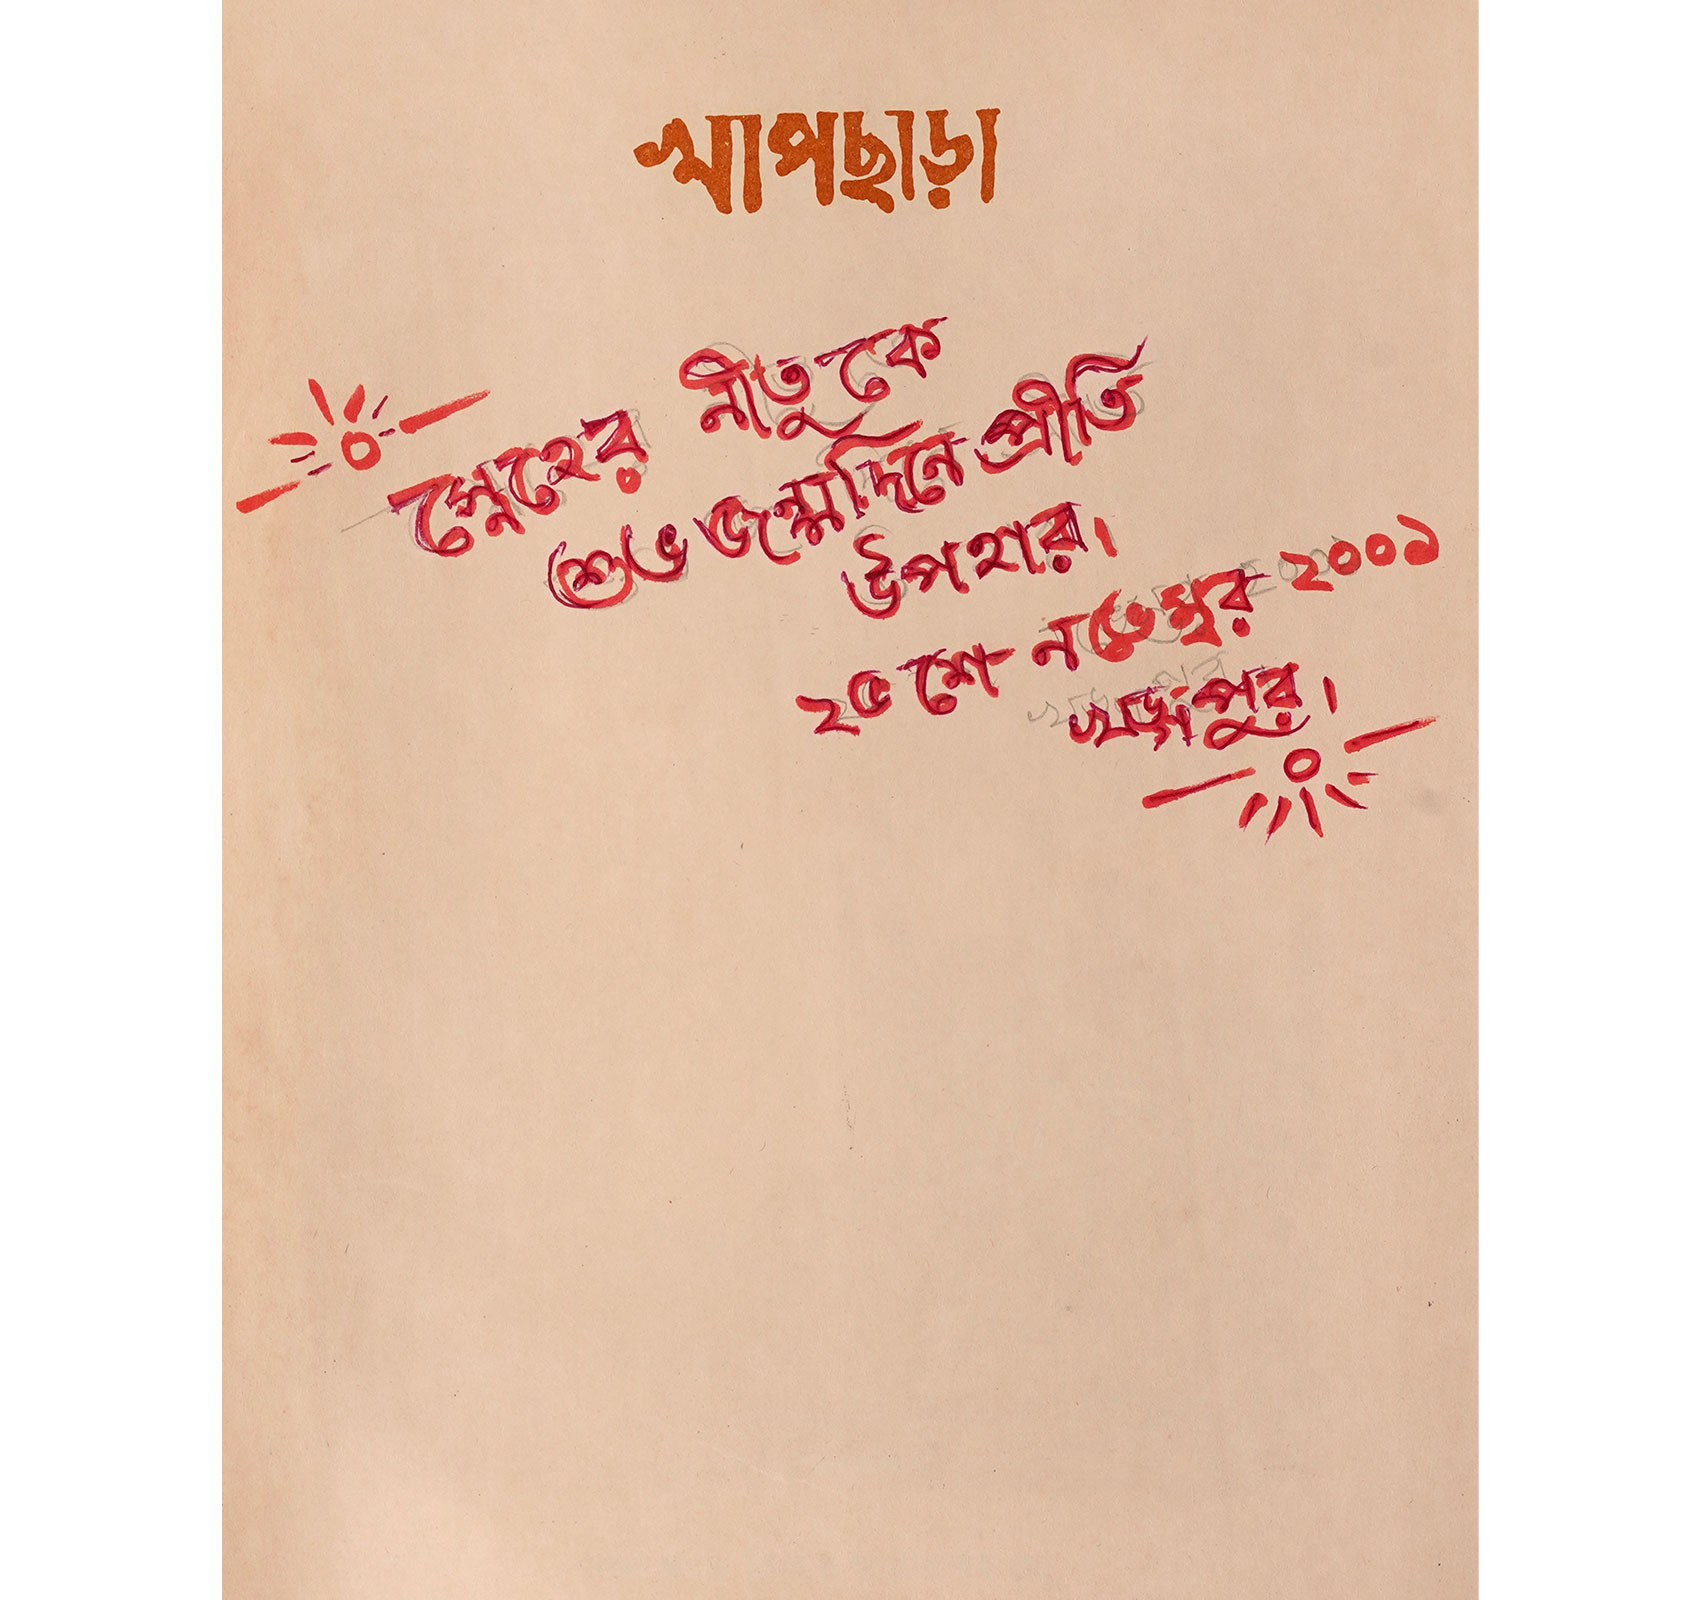 খাপছাড়া
স্নেহের নীতুকে
শুভ জন্মদিনে প্রীতি
উপহার।
২৫শে নভেম্বর ২০০১
খড়্গপুর।